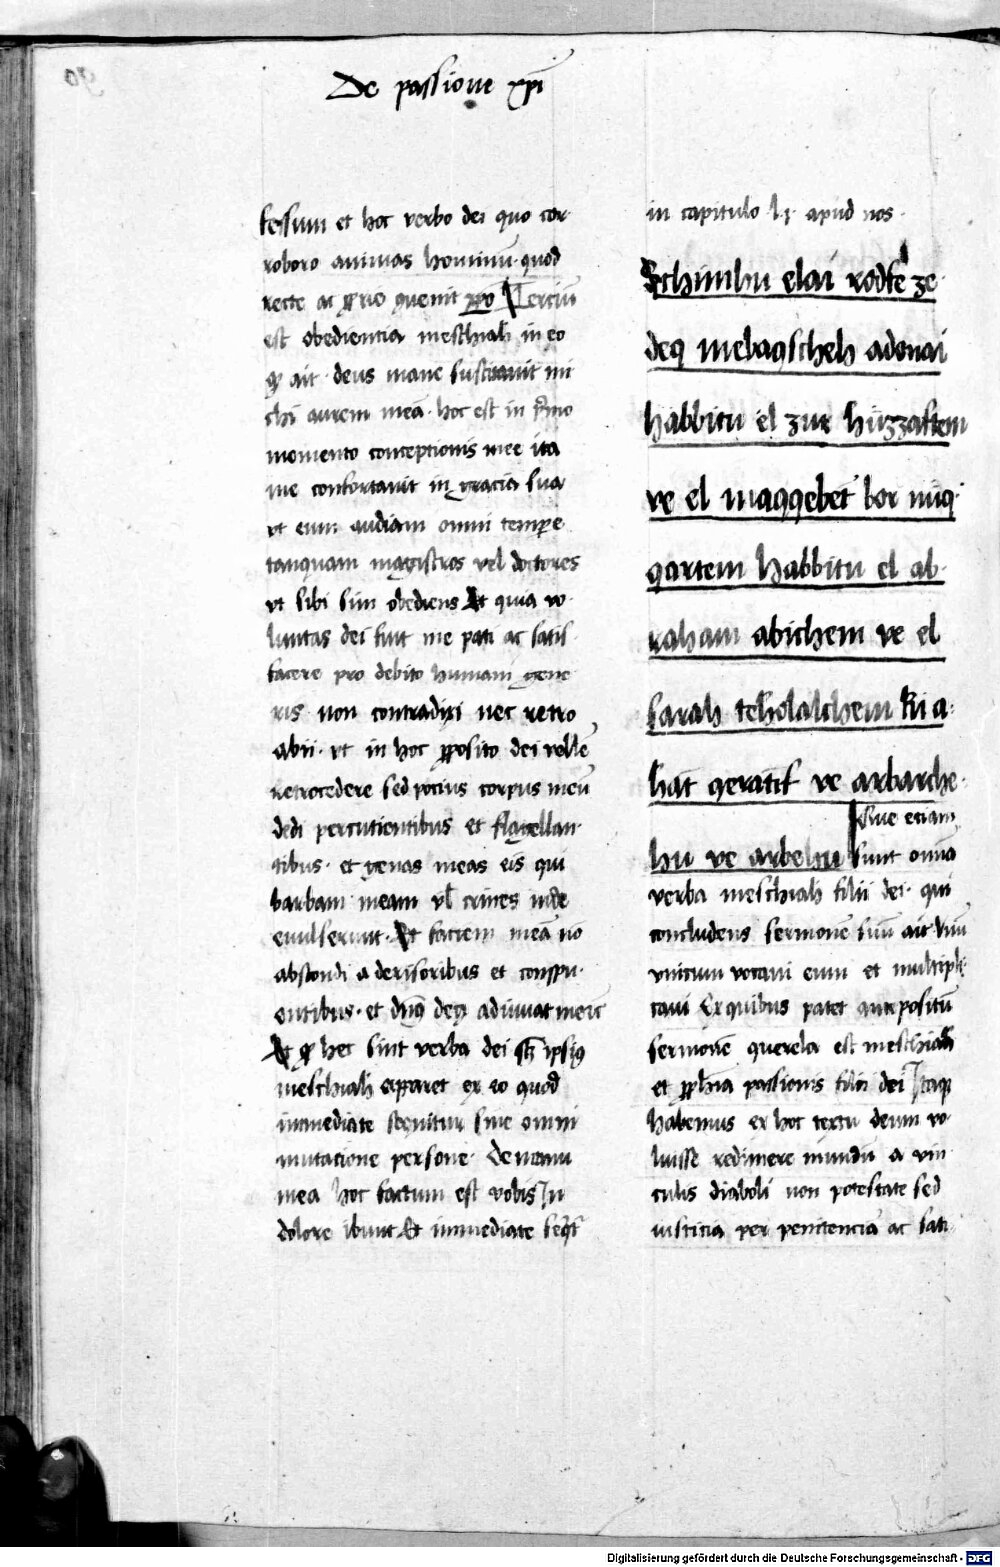 De passione xpi
fessum et hoc verbo dei quo cor-
roboro animas hominū· quod
recte ac ꝓrio quenit xpo Tercium
est obedientia meschiah in eo
ꝙ ait · deus mane suscitauit mi
chi aurem meā· hoc est in p̄mo
momento conceptionis mee ita
me confortauit in gracia sua
vt eum audiam omni tempore
tanquam magistros vel doctores
vt sibi sim obediens Et quia vo-
luntas dei fuit me pati ac satis-
facere pro debito humani gene
ris non contradixi nec retro
abii· vt in hoc ꝓposito dei velle
retrocedere sed pocius corpus meū
dedi percutientibus et flagellan-
tibus· et genas meas eis qui
barbam meam vl crines inde
euulserunt· Et faciem meā nō
abscondi a derisoribus et conspu-
entibus· et dns deus adiuuat
Et ꝙ hec sint verba dei ipsius
meschiah apparet ex eo quod
immediate sequitur sine omni
mutacione persone· De manu
mea hoc factum est vobis In
dolore ibunt Et immediate seqt
in capitulo lj apud nos·
Schimhu elai rodfe ze-
deq mebaqscheh adonai
habbitu el zur huzzaftem
ve el maqqebet bor nuq-
qartem habbitu el ab-
raham abichem ve el
sarah teholalchem ki a-
hat qeratif ve arbarche-
hu ve arbehu
Siue eciam
sunt omnia
verba meschiah filii dei· qui
concludens sermonē suū ait vnū
vnicum vocaui eum et multipli-
caui Ex quibus patet antepositū
sermonē querela est meschiah
et ꝓphīa passionis filii dei Itaque
habemus ex hoc textu deum vo-
luisse redimere mundū a vin-
culis diaboli non potestate sed
iusticia per penitencia ac sati-
Digitalisierung gefördert durch die Deutsche Forschungsgemeinschaft - DFG